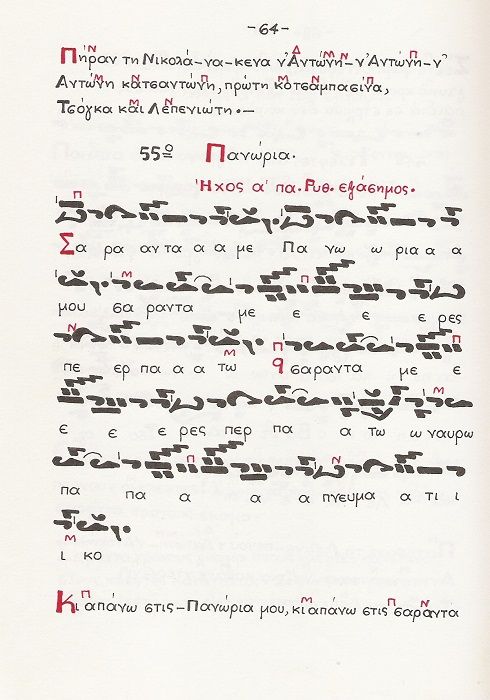 -64-
Πήραν τη Νικολά-να-κενα ν'Αντώνη-ν'Αντώνη-ν'
Αντώνη κατσαντώνη, πρώτη κοτσαμπασίνα,
Τσόγκα και Λεπενιώτη.-
55ο Πανώρια.
Ήχος α' πα. Ρυθ. εξάσημος.
Σα ρα αν τα α α με Πα νω ω ρια α α
μου σα ραντα με ε ε ε ρες
πε ερ πα α α τω σαραντα με ε
ε ε ε ρες περ πα α τω ω ναυρω
πα πα α α α πνευμα α τι ι
ι κο
Κι απάνω στις-Πανώρια μου, κι απάνω στις σαράντα